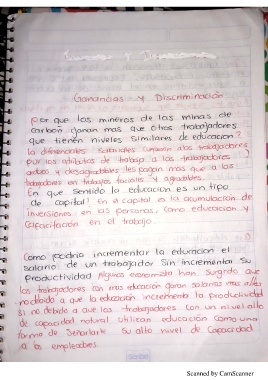 Ganancias y Discriminación
Por que los mineros de las minas de
carbón ganan mas que otros trabajadores
que tienen niveles similares de educacion?
la diferenciales salariales compensan a los trabajadores
por los atributos de trabajo a los trabajadores
arduos y desagradables les pagan mas que a los
trabajadores en trabajos faciles y agradables.
En que sentido la educacion es un tipo
de capital? En el capital es la acumulación de
inversiones en las personas, como educacion y
Capacitación en el trabajo.
Como podria incrementar la educacion el
salario de un trabajador sin incrementar su
productividad Algunos economistas han surgido que
los trabajadores con mas educacion ganan salarios mas altos
no debido a que la educacion incrementa la productividad
si no debido a que los trabajadores con un nivel alto
de capacidad natural utilizan educación como una
forma de señalarle su alto nivel de capacidad
a los empleadores.
Scanned by CamScanner